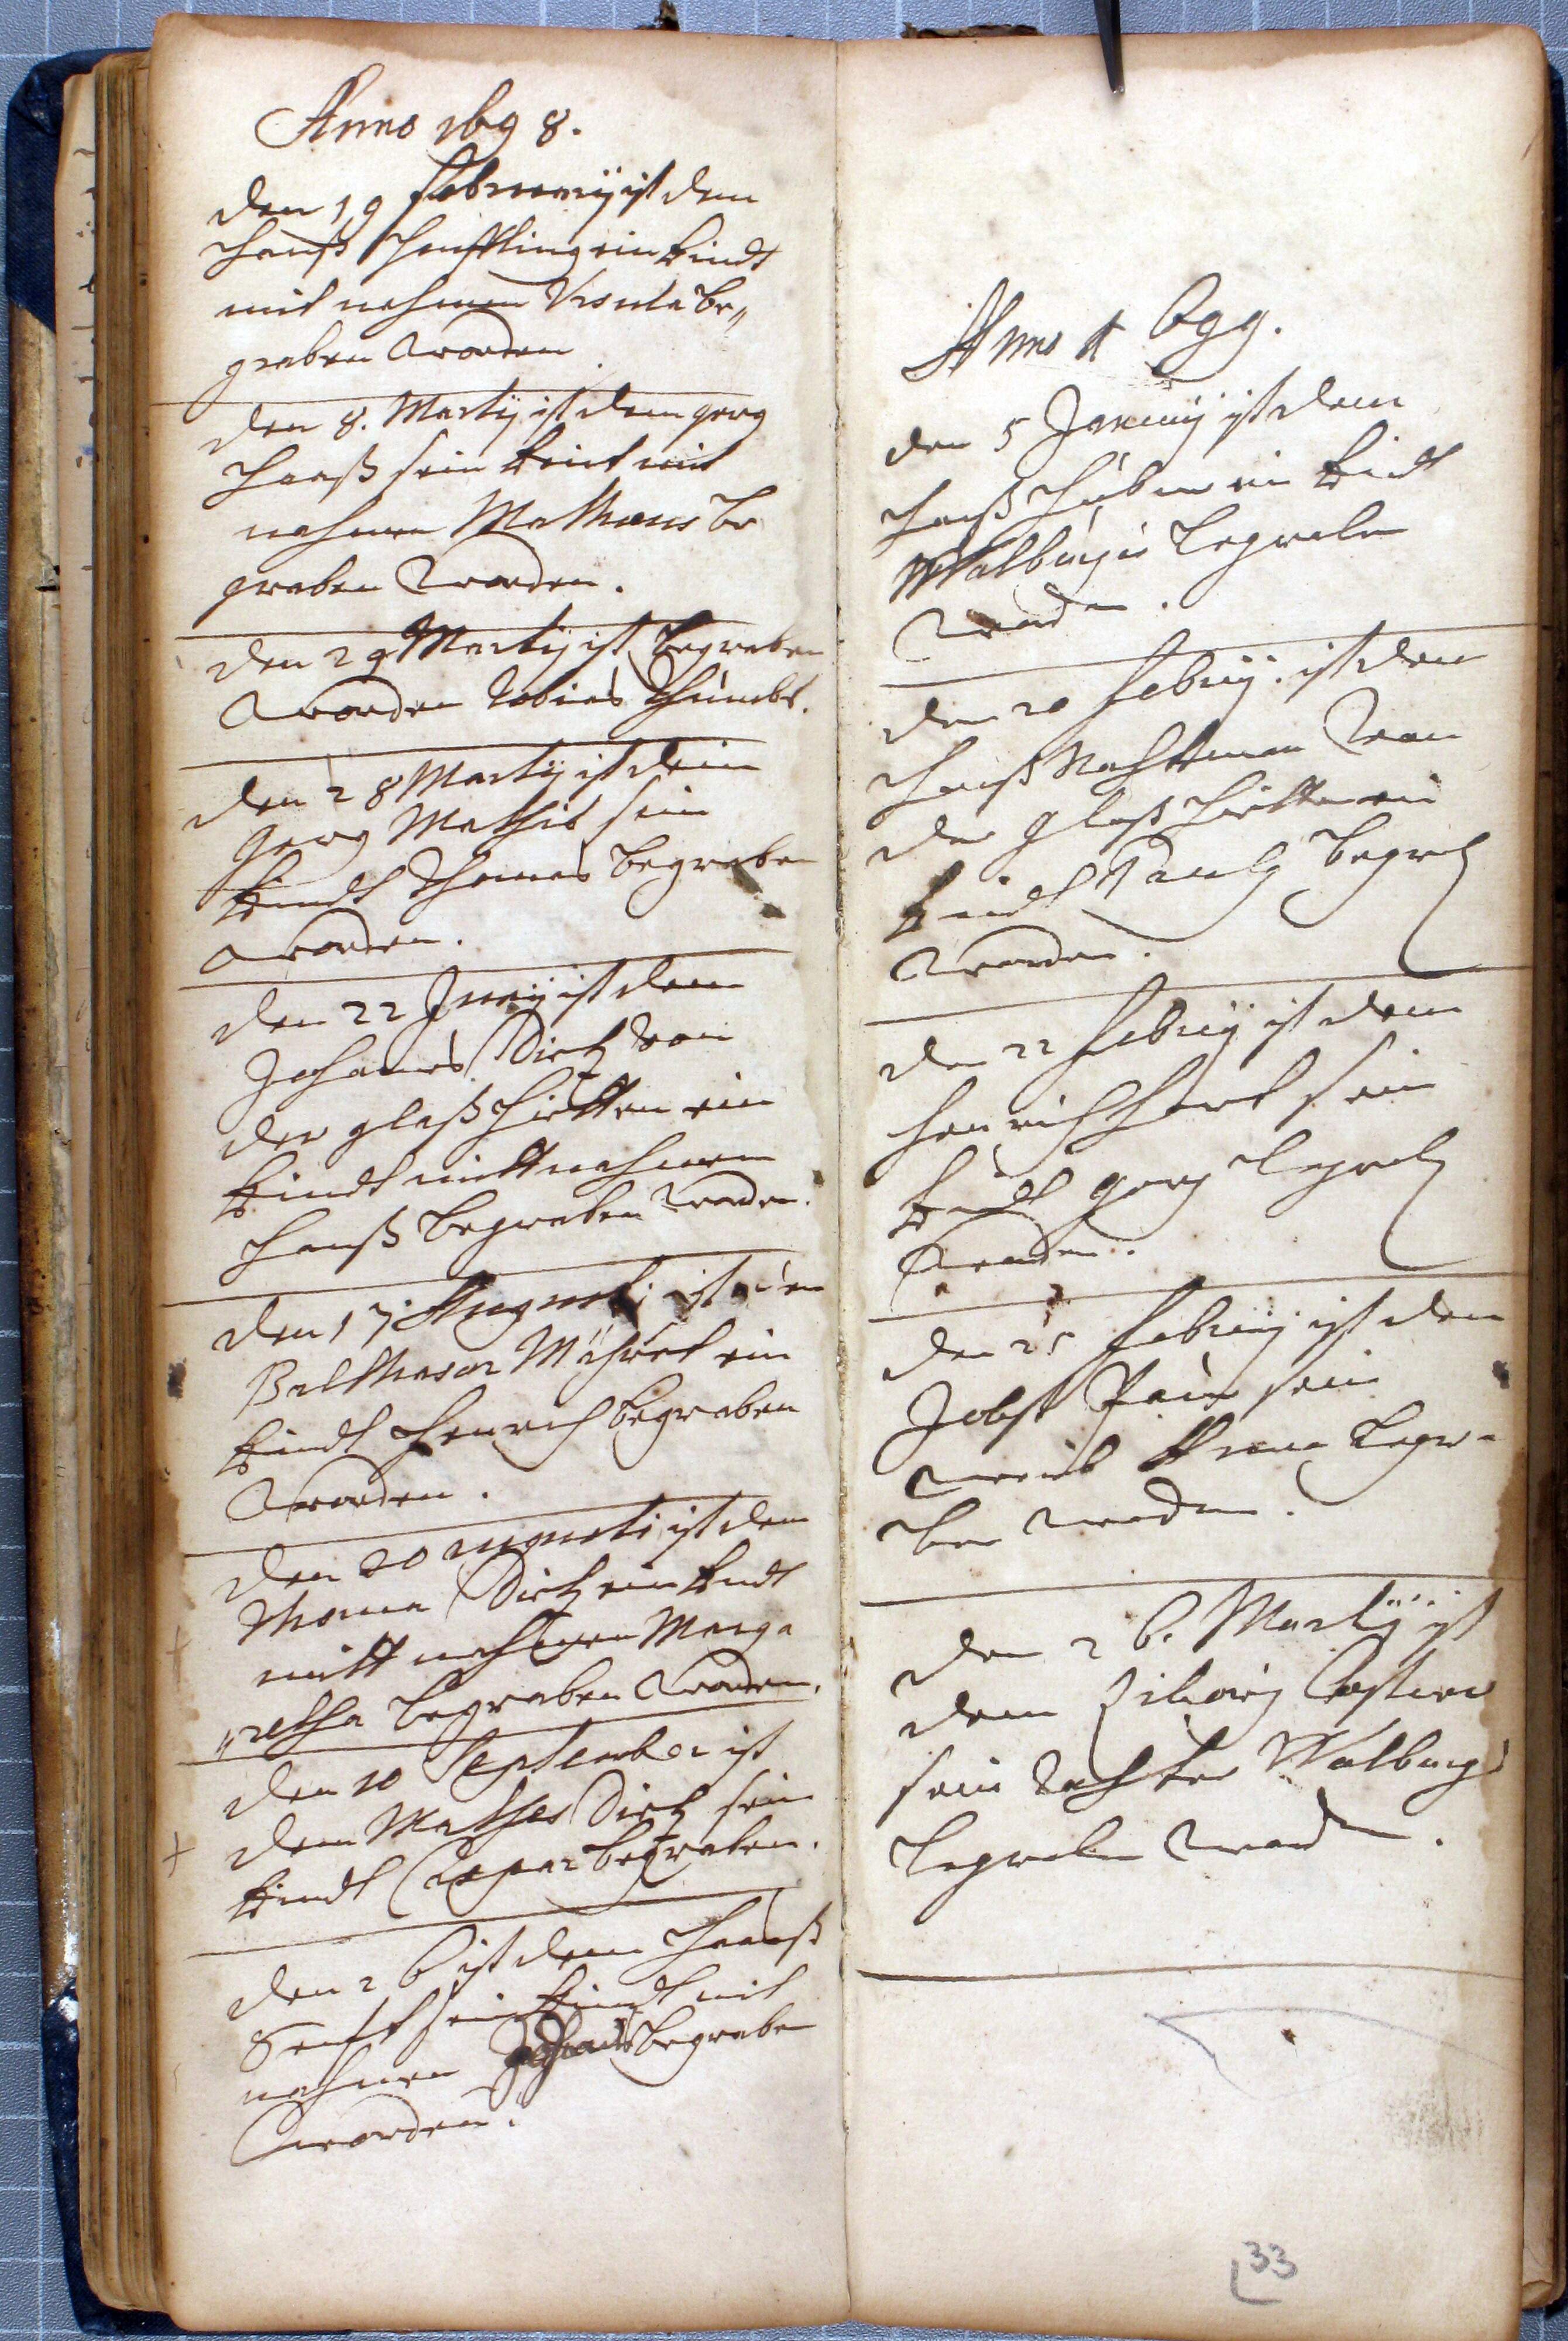 Anno 1698.
den 19 februarij ist dem
Hanß Heffling ein kindt
mit nahmen Ursula be„
graben worden
den 8. Martij ist dem georg
Haaß sein kint mit
nahmen Mathaeus be
graben worden.
den 29 Martij ist begraben
worden tobias
den 28 Martij ist dem
georg Mathis sein
kindt thomas begraben
worden.
den 22 Junij ist dem
Johanes Dietz von
der glaß hütten ein
kindt mitt nahmen
Hanß begraben worden.
den 17 Augusti ist dem
Balthasar ein
kindt Henrich begraben
worden.
den 20 augusti ist dem
thoma Dietz ein kindt
mitt nahmen Marga
„retha begraben worden.
den 10 September ist
dem Mathes Dietz sein
kindt Caspar begraben.
den 26 ist dem Hanß
Senft sein kindt mit
nahmen Johanes begraben
worden.
Anno 1699.
den 5 Januarij ist dem
Hanß Huber ein kindt
Walburgis begraben
worden.
den 20 febrij. ist dem
Hanß Nachtman von
der glaß hütten ein
kindt Paulg begrab
worden.
den 22 febrij ist dem
Henrich sein
kindt georg begrab
worden.
den 25 febrij ist dem
Jobst sein
weib Anna begra-
ben worden.
den 26. Martij ist
dem
sein tochter Walburgis
begraben worden.
33